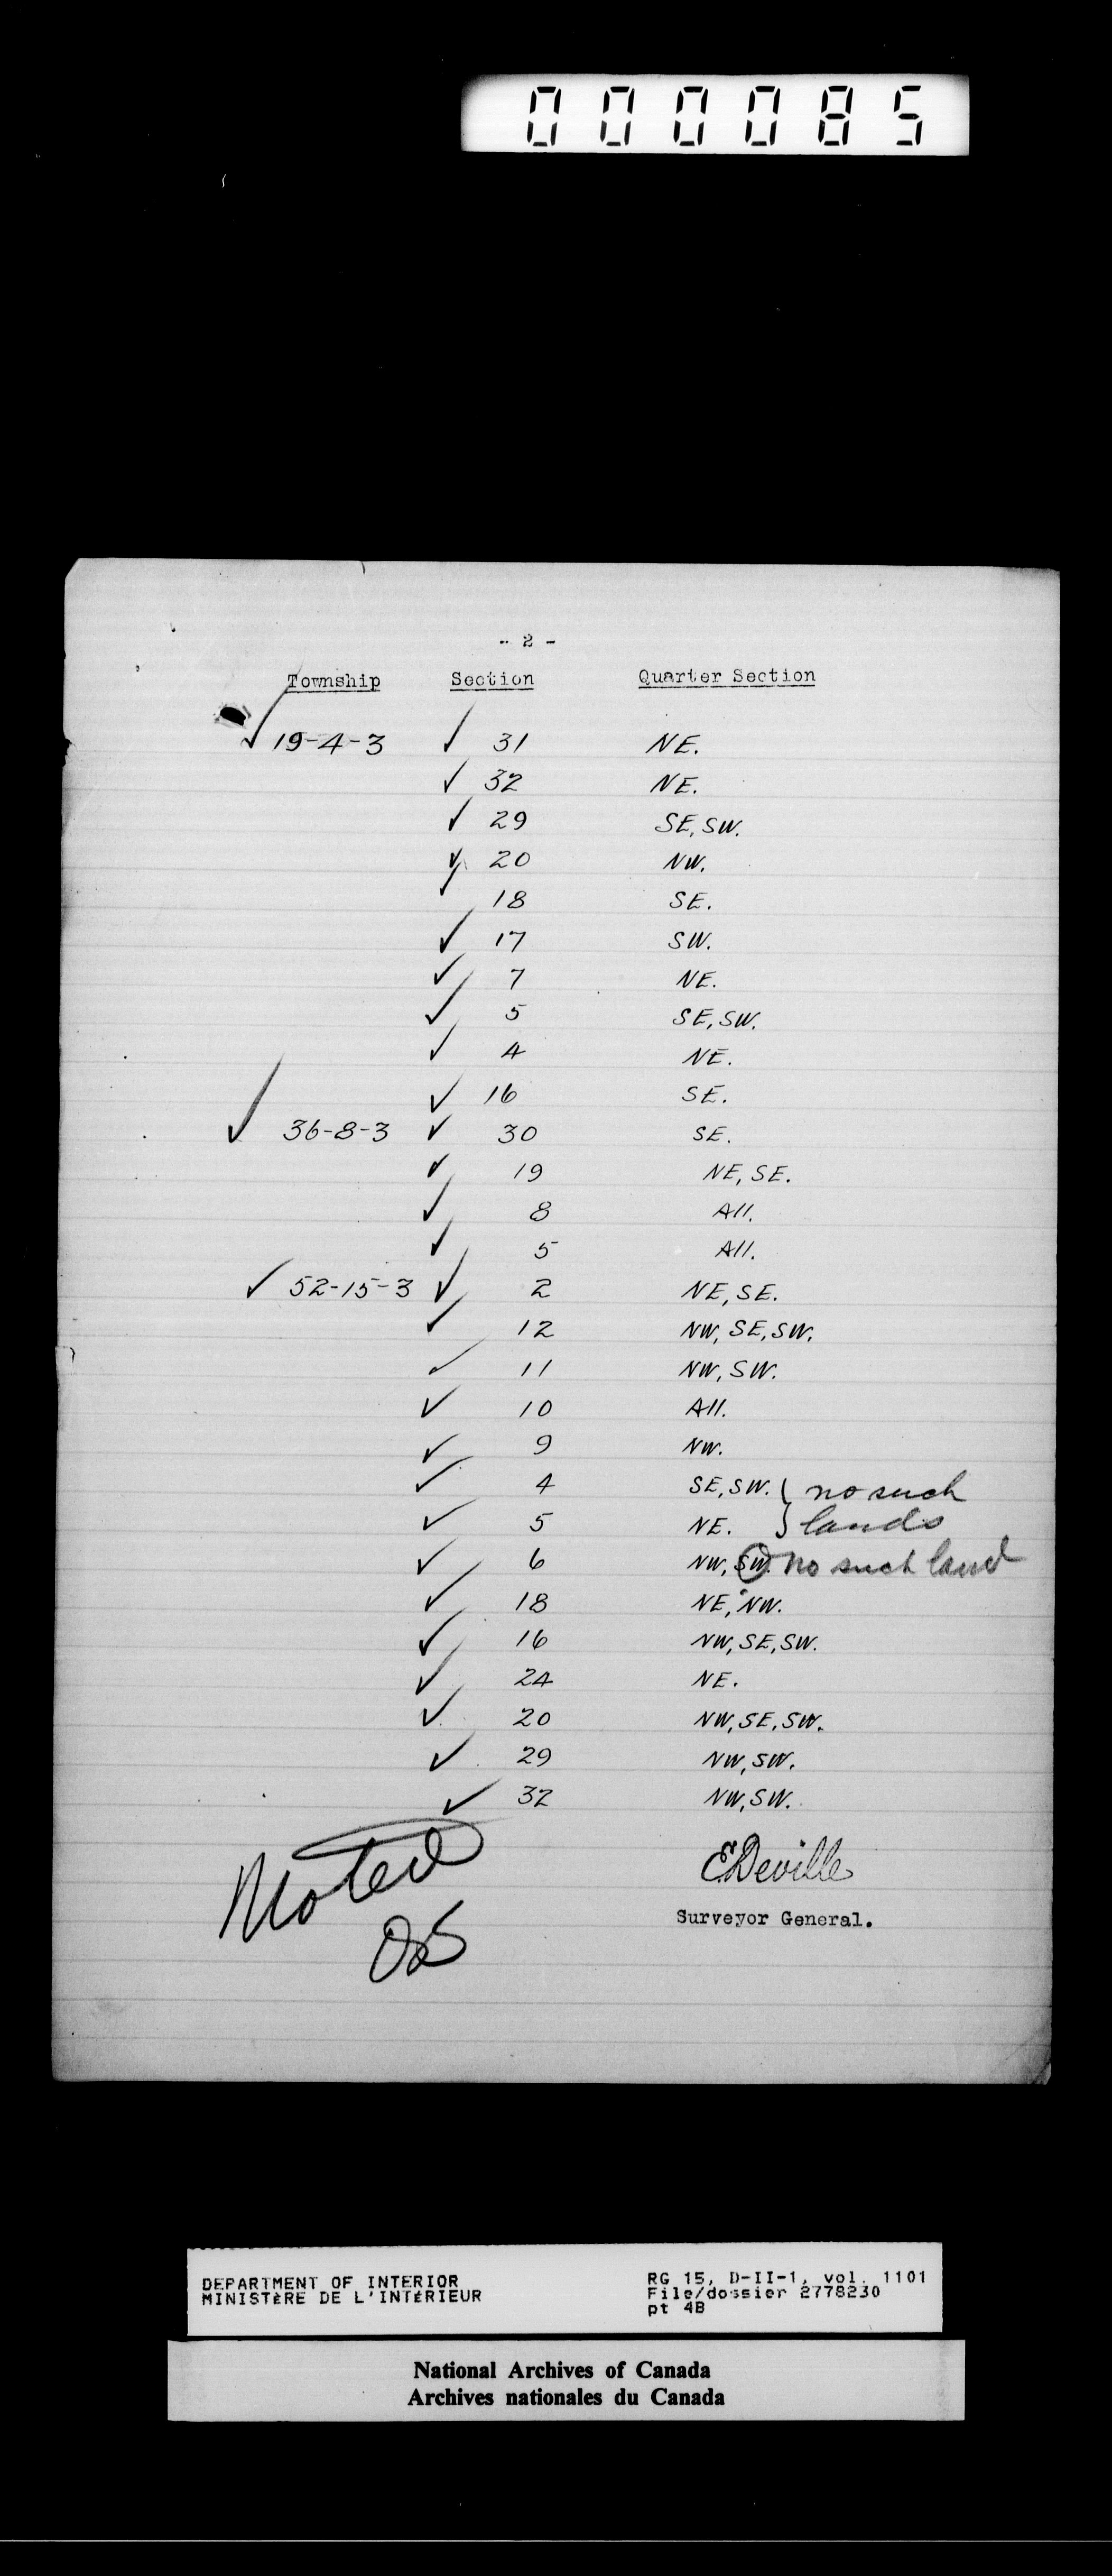 000085
- 2 -
Township Section Quarter Section
✓ 19-4-3 ✓ 31 NE.
✓ 32 NE.
✓ 29 SE, SW.
✓ 20 NW.
✓ 18 SE.
✓ 17 SW.
✓ 7 NE.
✓ 5 SE, SW.
✓ 4 NE.
✓ 16 SE.
✓ 36-8-3 ✓ 30 SE.
✓ 19 NE, SE.
✓ 8 All.
✓ 5 All.
✓ 52-15-3 ✓ 2 NE, SE.
✓ 12 NW, SE, SW.
✓ 11 NW, SW.
✓ 10 All.
✓ 9 NW.
✓ 4 SE, SW. } no such
✓ 5 NE. } lands
✓ 6 NW, SW. no such land
✓ 18 NE, NW.
✓ 16 NW, SE, SW.
✓ 24 NE.
✓ 20 NW, SE, SW.
✓ 29 NW, SW.
✓ 32 NW, SW.
Noted
E Deville
Surveyor General.
DEPARTMENT OF INTERIOR
MINISTÈRE DE L'INTÉRIEUR
RG 15, D-II-1, vol. 1101
File/dossier 2778230
pt 4B
National Archives of Canada
Archives nationales du Canada